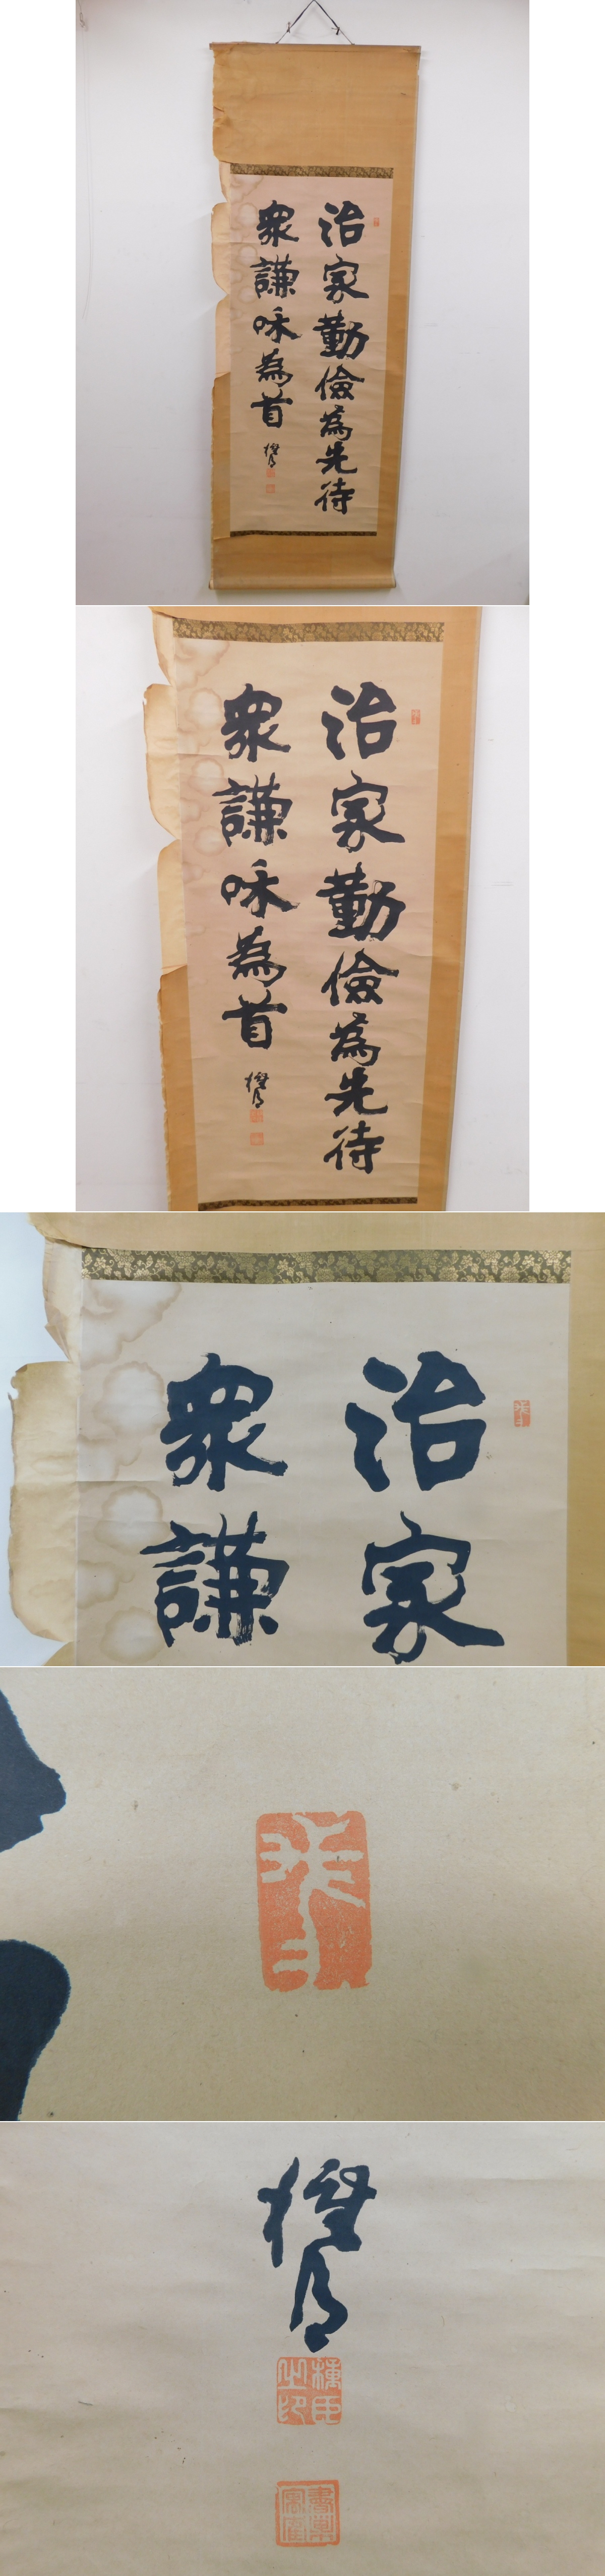 治家勤儉為先待
衆謙咊為首
治家勤儉為先待
衆謙咊為首
治家
衆謙